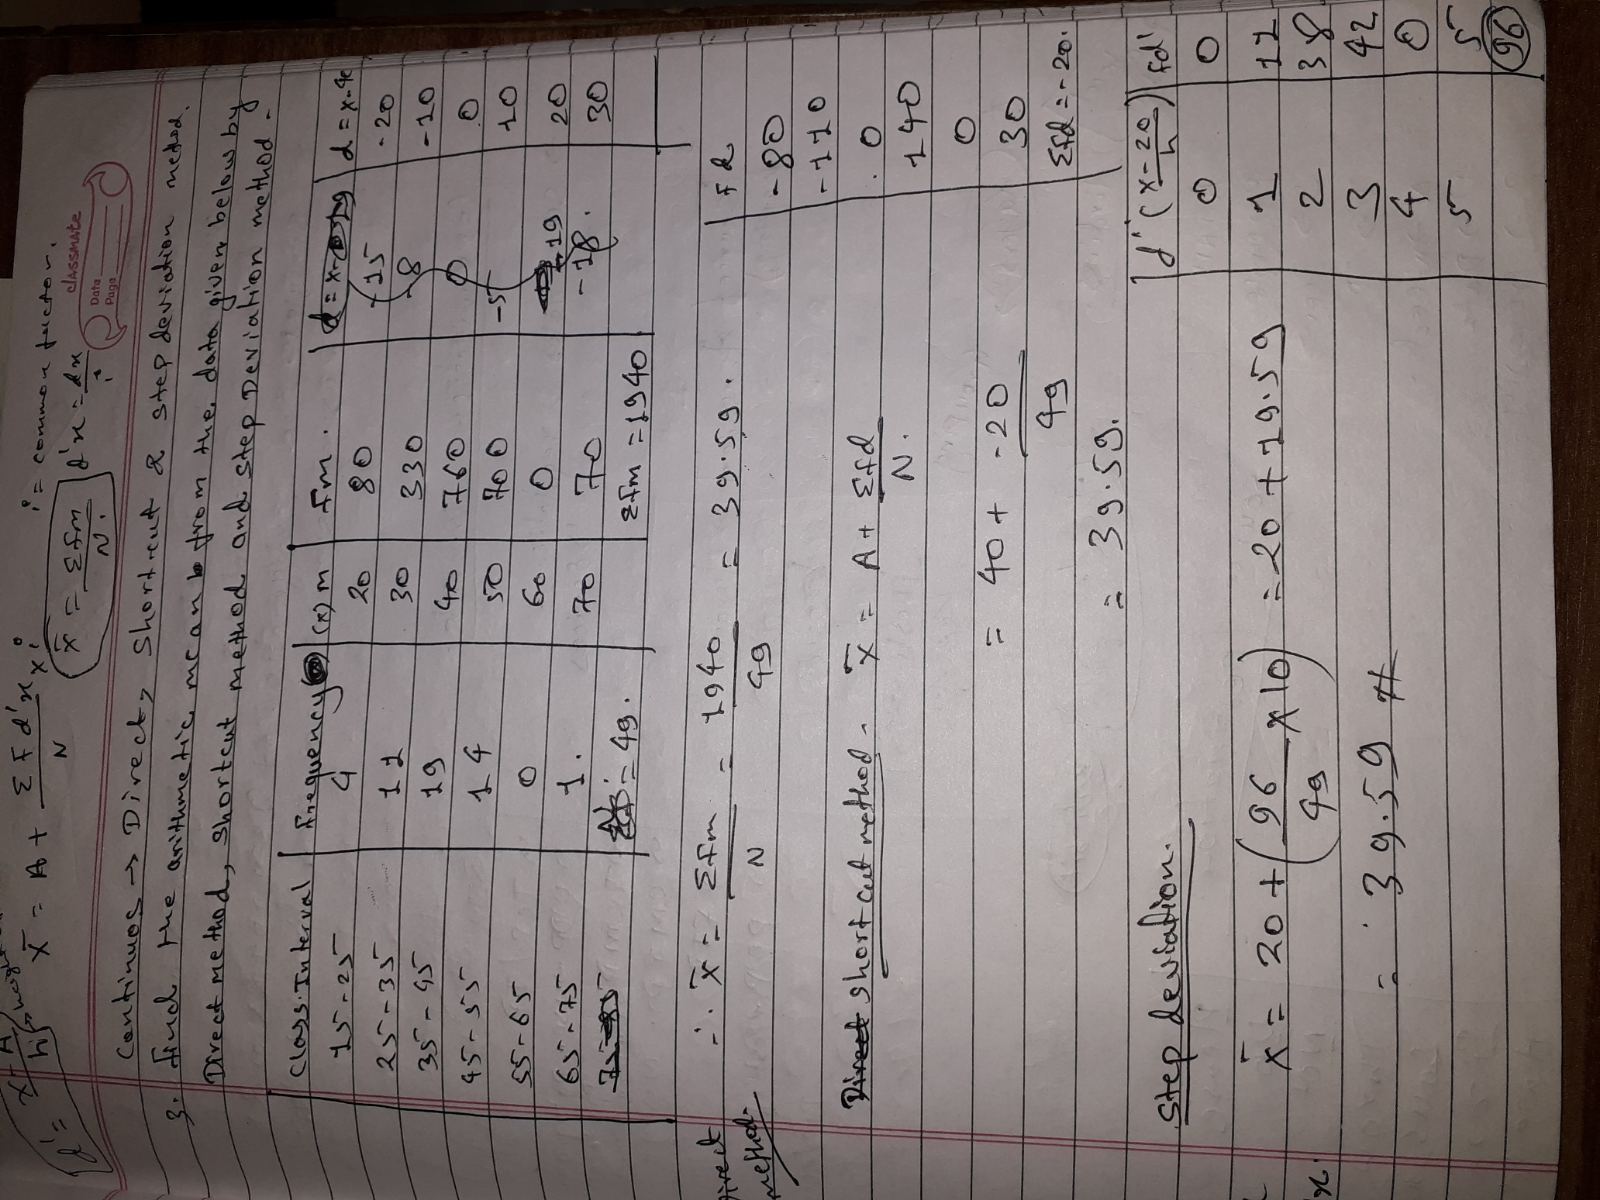 i = common factor.
x̄ = A + Σfd'x / N × i
x̄ = Σfm / N.
d'x = dx / i
d' = x-A / h
classmate
Date
Page
Continuos → Direct, Shortcut & step deviation method.
3. find the arithmetic mean from the data given below by
Direct method, shortcut method and step Deviation method -
Class Interval | Frequency | (x) m | fm. | d = x-
15-25 | 4 | 20 | 80 | -15 | -20
25-35 | 11 | 30 | 330 | -8 | -10
35-45 | 19 | 40 | 760 | 0 | 0
45-55 | 14 | 50 | 700 | -5 | 10
55-65 | 0 | 60 | 0 | -19 | 20
65-75 | 1. | 70 | 70 | -18. | 30
75-85 | = 49. | Σfm = 1940
Direct method.
∴ x̄ = Σfm / N = 1940 / 49 = 39.59.
fd
-80
-110
0
140
0
30
Σfd = -20.
Direct short cut method. x̄ = A + Σfd / N.
= 40 + -20 / 49
= 39.59.
Step deviation.
d' (x-20 / h) | fd'
0 | 0
1 | 11
2 | 38
3 | 42
4 | 0
5 | 5
96
x̄ = 20 + (96 / 49 × 10) = 20 + 19.59
= 39.59 //